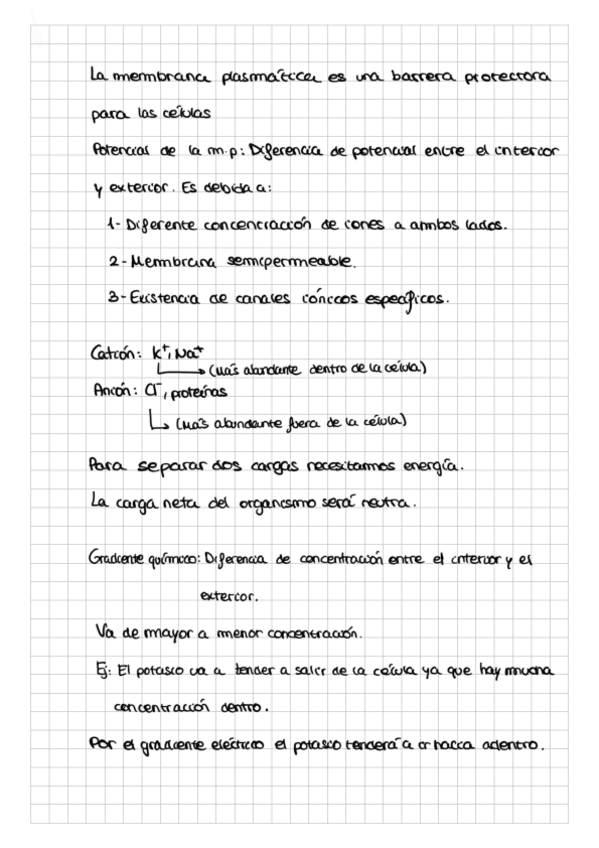 La membrana plasmática es una barrera protectora
para las células
Potencial de la m.p: Diferencia de potencial entre el interior
y exterior. Es debida a:
1- Diferente concentración de iones a ambos lados.
2- Membrana semipermeable.
3- Existencia de canales iónicos específicos.
Catión: K⁺, Na⁺
(más abundante dentro de la célula)
Anión: Cl⁻, proteínas
(más abundante fuera de la célula)
Para separar dos cargas necesitamos energía.
La carga neta del organismo será neutra.
Gradiente químico: Diferencia de concentración entre el interior y el
exterior.
Va de mayor a menor concentración.
Ej: El potasio va a tender a salir de la célula ya que hay mucha
concentración dentro.
Por el gradiente eléctrico el potasio tendería a ir hacia adentro.